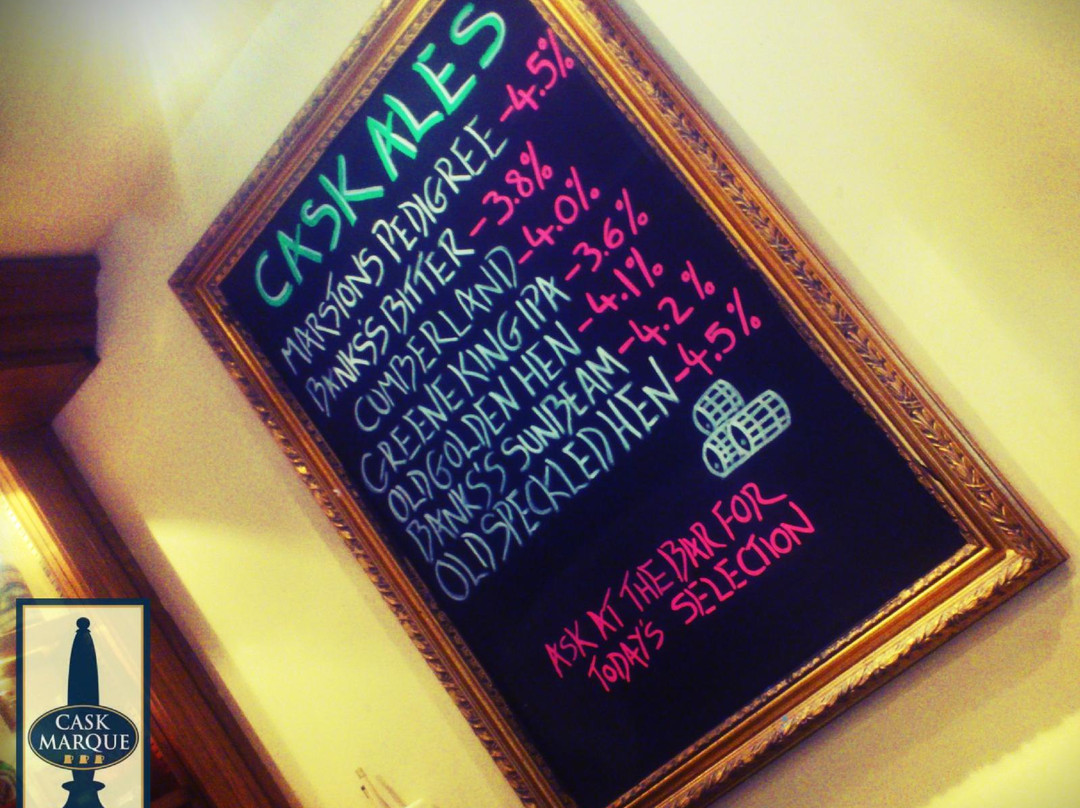 CASK ALES
MARSTONS PEDIGREE -4.5%
BANKS'S BITTER -3.8%
CUMBERLAND -4.0%
GREENE KING IPA -3.6%
OLD GOLDEN HEN -4.1%
BANKS'S SUNBEAM -4.2%
OLD SPECKLED HEN -4.5%
ASK AT THE BAR FOR
TODAY'S SELECTION
CASK
MARQUE